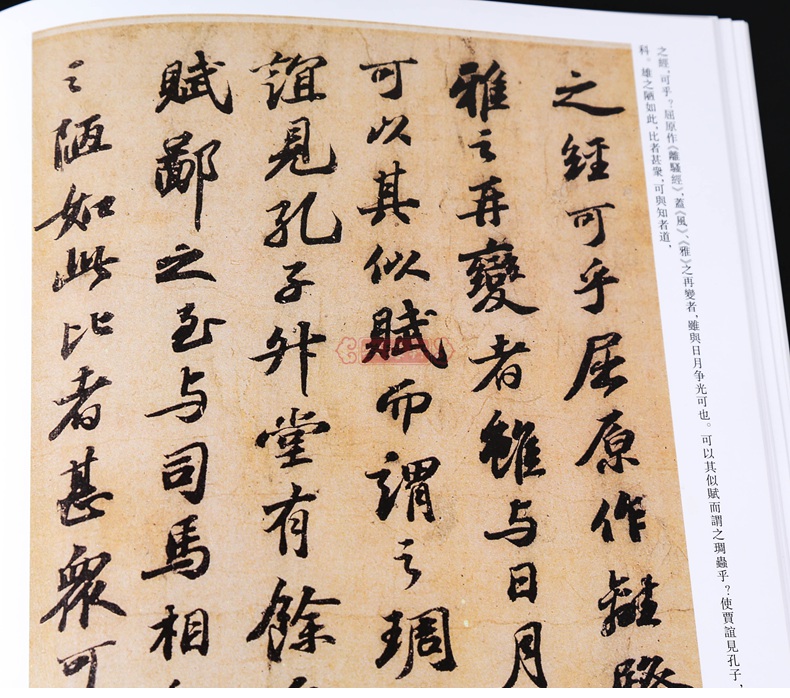 之經,可乎？屈原作《離騷經》,蓋《風》、《雅》之再變者,雖與日月争光可也。可以其似賦而謂之琱蟲乎？使賈誼見孔子,
科。雄之陋如此,比者甚衆,可與知者道,
之經可乎屈原作離騷
雅之再變者雖与日月
可以其似賦而謂之琱
誼見孔子升堂有餘
賦鄙之至与司馬相
之陋如此比者甚衆可